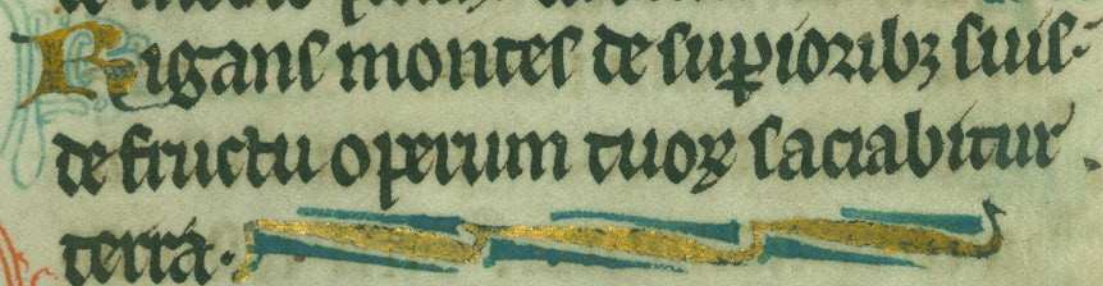 Rigans montes de sup̲ioribꝫ suis·
de fructu operum tuoꝝ saciabitur
terra·